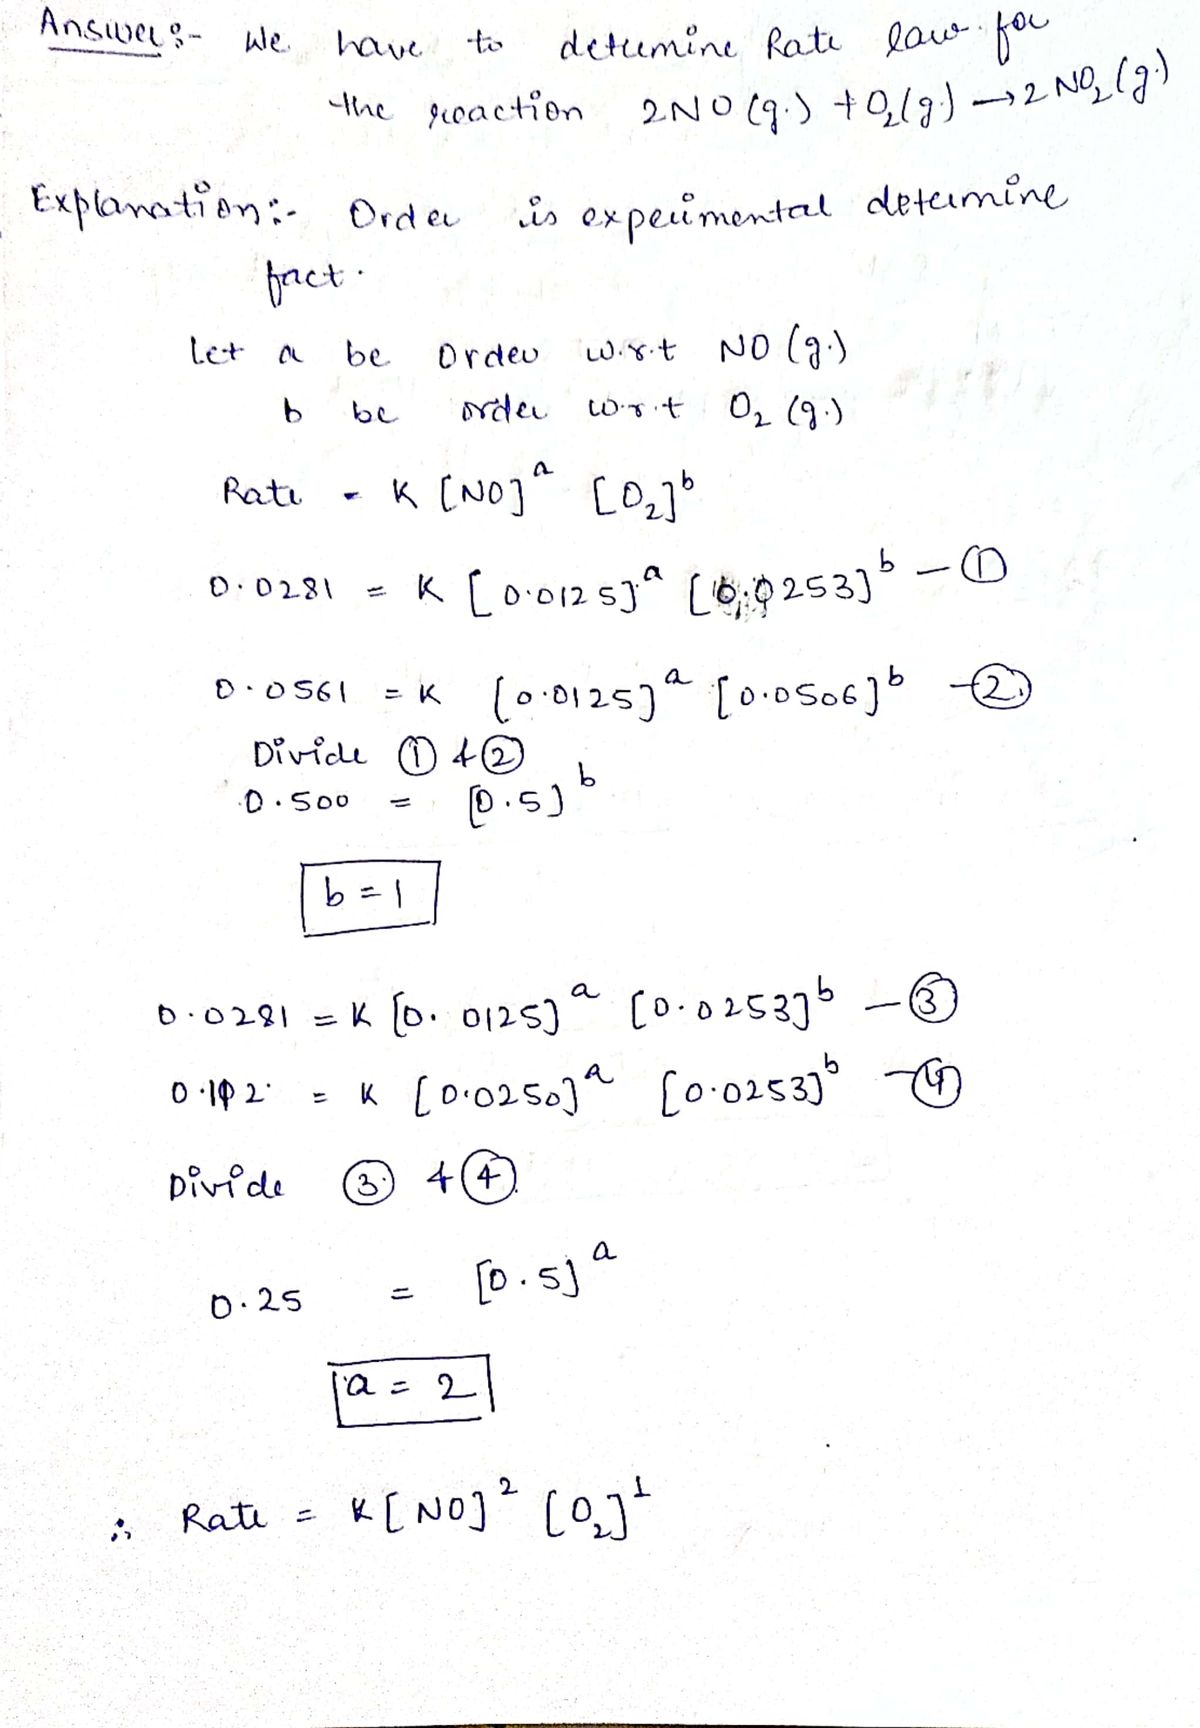 Answer :- We have to determine Rate law for
the reaction 2NO (g.) + O₂(g.) → 2 NO₂ (g.)
Explanation :- Order is experimental determine
fact.
Let a be Order w.r.t NO (g.)
b be order w.r.t O₂ (g.)
Rate = K [NO]ᵃ [O₂]ᵇ
0.0281 = K [0.0125]ᵃ [0.0253]ᵇ — ①
0.0561 = K [0.0125]ᵃ [0.0506]ᵇ — ②
Divide ① & ②
0.500 = [0.5]ᵇ
b = 1
0.0281 = K [0.0125]ᵃ [0.0253]ᵇ — ③
0.112 = K [0.0250]ᵃ [0.0253]ᵇ — ④
Divide ③ & ④
0.25 = [0.5]ᵃ
a = 2
∴ Rate = K [NO]² [O₂]¹